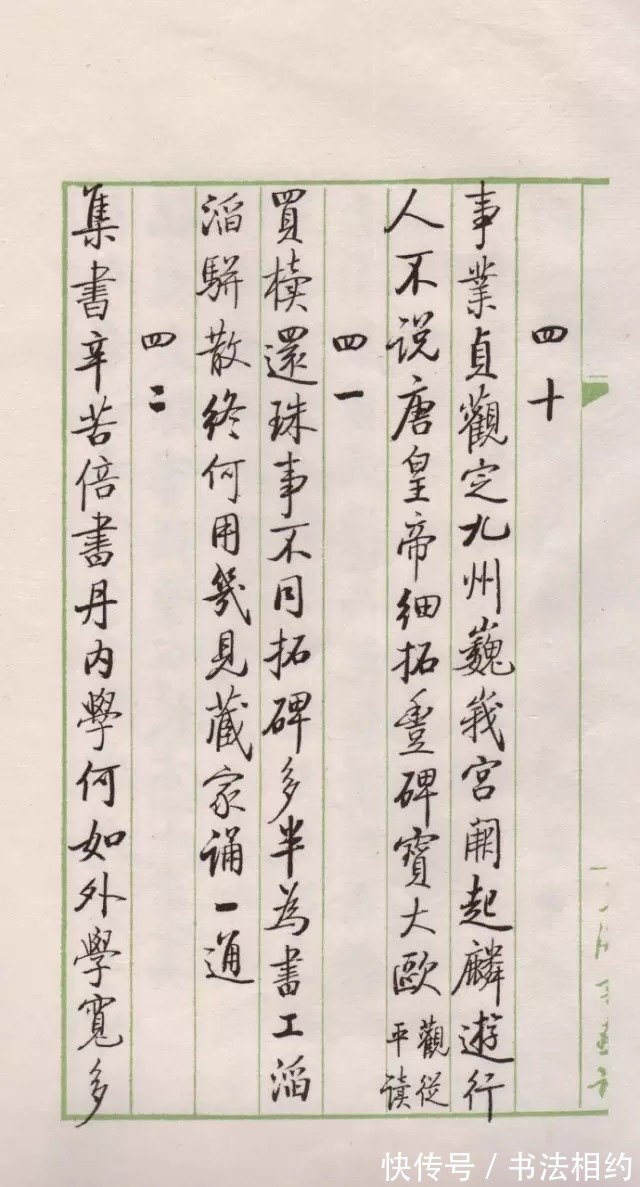 四十
事業貞觀定九州巍峩宮闕起麟遊行
人不说唐皇帝细拓豐碑寶大歐觀從平读
四一
買櫝還珠事不同拓碑多半為書工滔
滔駢散終何用幾見藏家誦一通
四二
集書辛苦倍書丹内學何如外學寬多
快传号/书法相约